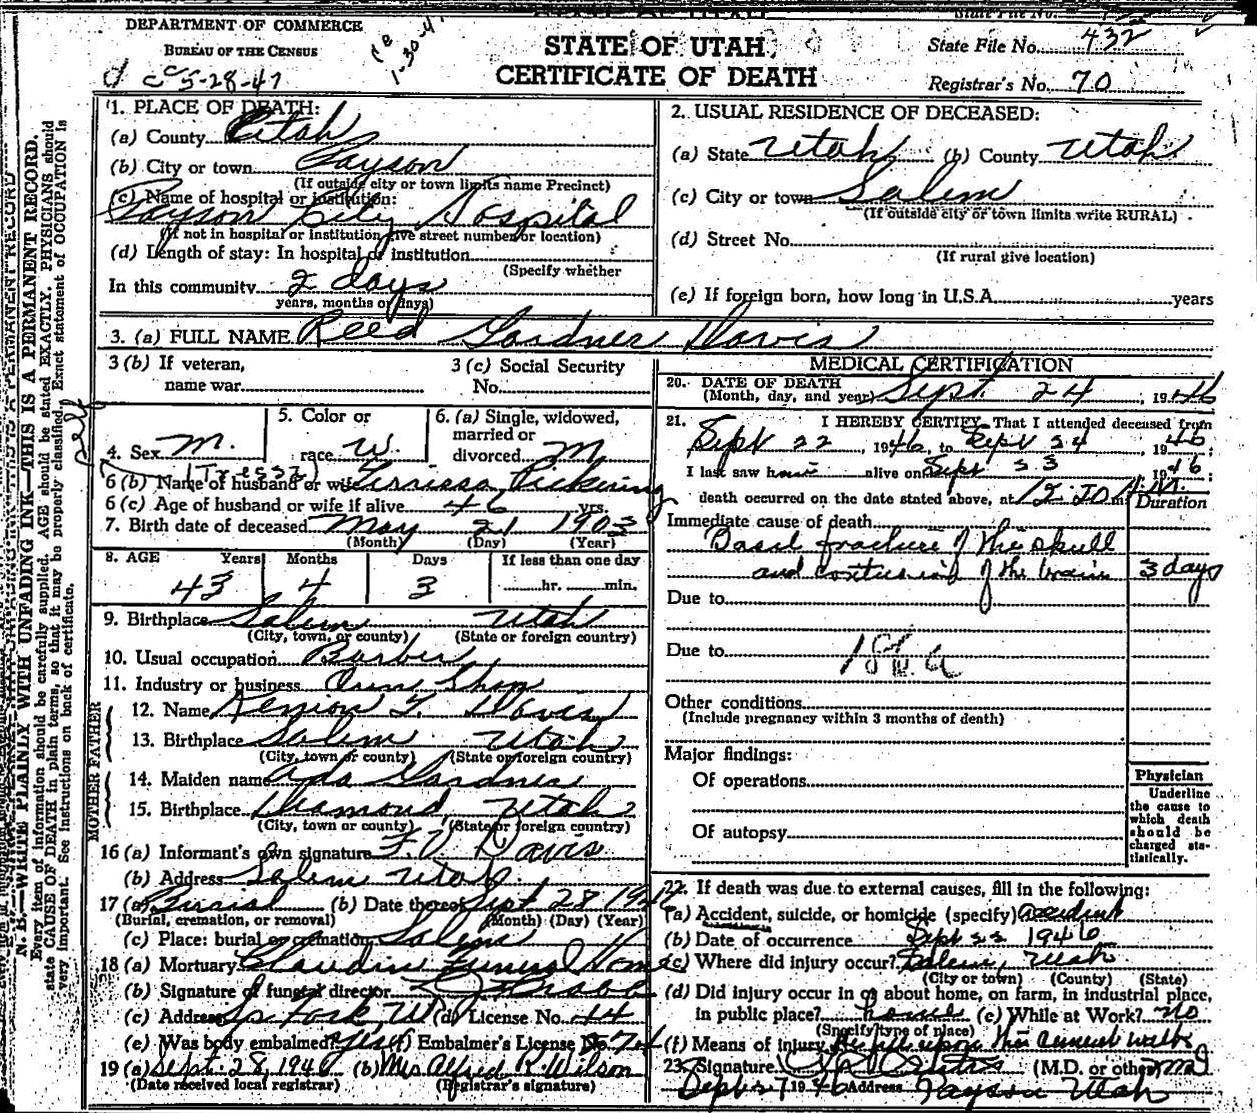 DEPARTMENT OF COMMERCE
BUREAU OF THE CENSUS
5-28-47
1-30-4
STATE OF UTAH
CERTIFICATE OF DEATH
State File No. 432
Registrar's No. 70
N. B.—WRITE PLAINLY WITH UNFADING INK—THIS IS A PERMANENT RECORD.
Every item of information should be carefully supplied. AGE should be stated EXACTLY. PHYSICIANS should
state CAUSE OF DEATH in plain terms, so that it may be properly classified. Exact statement of OCCUPATION is
very important. See instructions on back of certificate.
1. PLACE OF DEATH:
(a) County Utah
(b) City or town Payson
(If outside city or town limits name Precinct)
(c) Name of hospital or institution:
Payson City Hospital
(If not in hospital or institution give street number or location)
(d) Length of stay: In hospital or institution
(Specify whether
In this community 2 days
years, months or days)
2. USUAL RESIDENCE OF DECEASED:
(a) State Utah (b) County Utah
(c) City or town Salem
(If outside city or town limits write RURAL)
(d) Street No.
(If rural give location)
(e) If foreign born, how long in U.S.A. years
3. (a) FULL NAME Reed Gardner Davis
3 (b) If veteran,
name war
3 (c) Social Security
No.
4. Sex M.
5. Color or
race W.
6. (a) Single, widowed,
married or
divorced M
(Tressa)
6 (b) Name of husband or wife Terrissa Pickering
6 (c) Age of husband or wife if alive 46 yrs.
7. Birth date of deceased May 21 1903
(Month) (Day) (Year)
8. AGE Years Months Days If less than one day
43 4 3 hr. min.
9. Birthplace Salem Utah
(City, town, or county) (State or foreign country)
10. Usual occupation Barber
11. Industry or business Own Shop
FATHER
12. Name Kenion T. Davis
13. Birthplace Salem Utah
(City, town or county) (State or foreign country)
MOTHER
14. Maiden name Ada Gardner
15. Birthplace Diamond, Utah
(City, town or county) (State or foreign country)
16 (a) Informant's own signature F. V. Davis
(b) Address Salem Utah.
17 (a) Burial (b) Date thereof Sept 28 1946
(Burial, cremation, or removal) (Month) (Day) (Year)
(c) Place: burial or cremation Salem
18 (a) Mortuary Claudin Funeral Home
(b) Signature of funeral director
(c) Address Sp Fork U (d) License No. 44
(e) Was body embalmed? yes (f) Embalmer's License No.
19 (a) Sept. 28, 1946 (b) Mrs Alfred R. Wilson
(Date received local registrar) (Registrar's signature)
MEDICAL CERTIFICATION
20. DATE OF DEATH
(Month, day, and year) Sept. 24, 1946
21. I HEREBY CERTIFY, That I attended deceased from
Sept 22, 1946, to Sept 24, 1946
I last saw him alive on Sept 23 1946;
death occurred on the date stated above, at M.
Duration
Immediate cause of death
Basil fracture of the skull
and contusion of the brain 3 days
Due to
Due to
Other conditions
(Include pregnancy within 3 months of death)
Major findings:
Of operations
Of autopsy
Physician
Underline
the cause to
which death
should be
charged sta-
tistically.
22. If death was due to external causes, fill in the following:
(a) Accident, suicide, or homicide (specify) accident
(b) Date of occurrence Sept 22 1946
(c) Where did injury occur? Salem, Utah
(City or town) (County) (State)
(d) Did injury occur in or about home, on farm, in industrial place,
in public place? home (e) While at Work? no
(Specify type of place)
(f) Means of injury He fell upon the cement walk
23. Signature (M.D. or other) MD
Sept 27 1946 Address Payson Utah